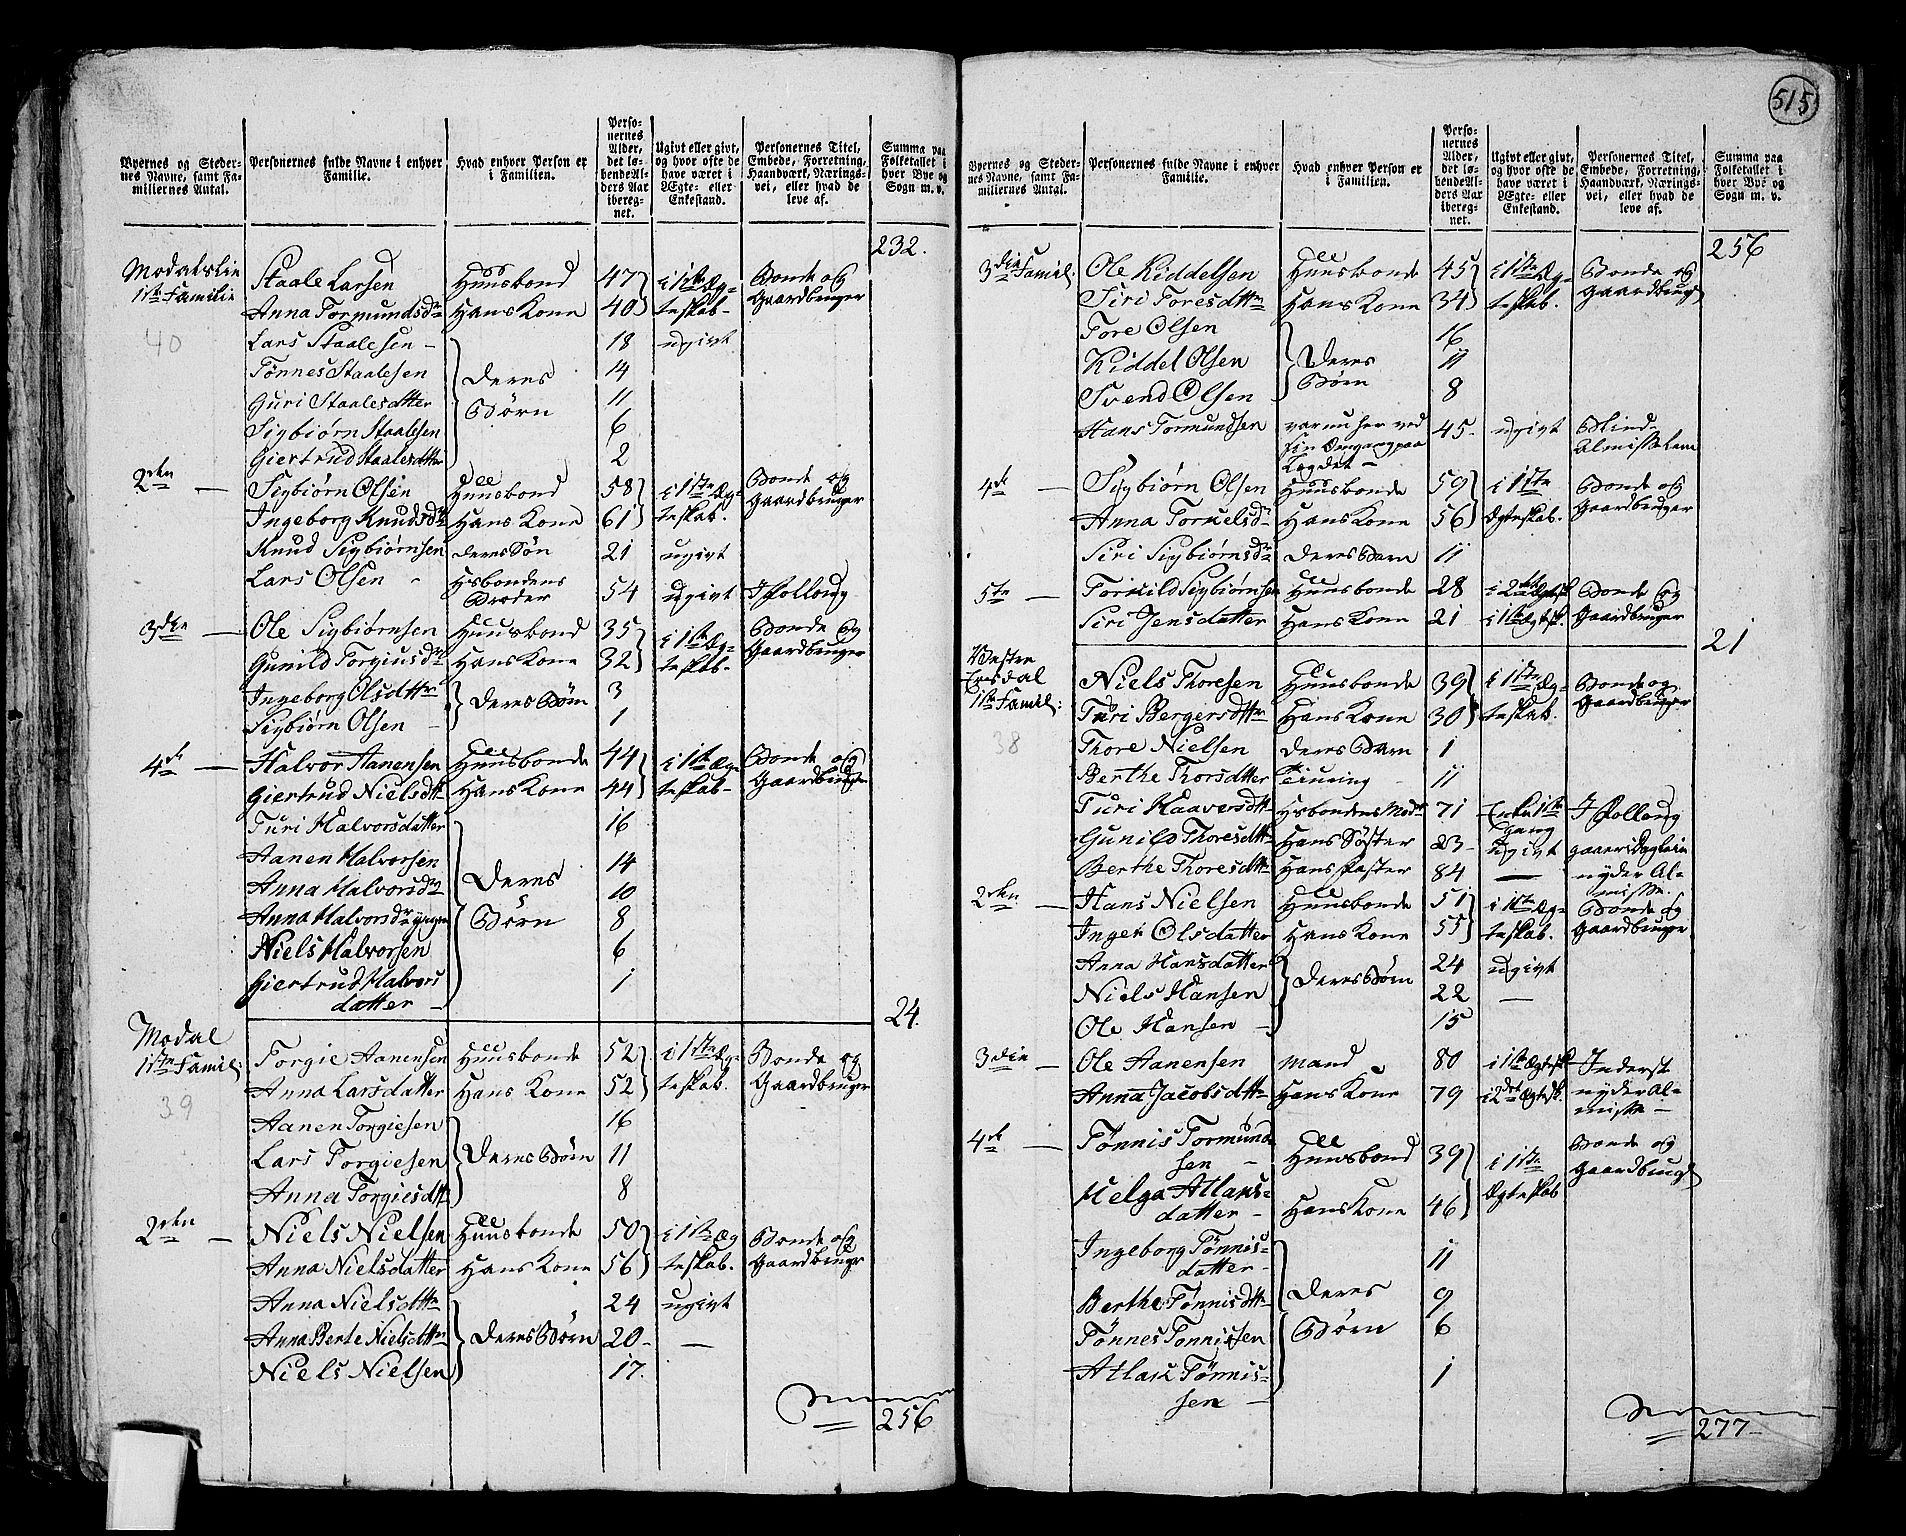 Byernes og Stedernes Navne, samt Familiernes Antal. | Personernes fulde Navne i enhver Familie. | Hvad enhver Person er i Familien. | Personernes Alder, det løbende Alders Aar iberegnet. | Ugivt eller givt, og hvor ofte de have været i Ægte- eller Enkestand. | Personernes Titel, Embede, Forretning, Haandværk, Næringsvei, eller hvad de leve af. | Summa paa Folketallet i hver Bye og Sogn m. v.
232.
Modalslie
1ste Familie | Staale Larsen | Huusbond | 47 | i 1ste Æg- | Bonde og
Anna Tormundsdr | Hans Kone | 40 | teskab- | Gaardbruger
40 | Lars Staalesen - | 18 | ugivt
Tønnes Staalesen | Deres | 14
Guri Staalesdatter | Børn | 11
Sigbiørn Staalesen | 6
Giertrud Staalesdatter | 2
2den — | Sigbiørn Olsen | Huusbond | 58 | i 1ste Æg- | Bonde og
Ingeborg Knudsdr | Hans Kone | 61 | teskab. | Gaardbruger
Knud Sigbiørnsen | deres Søn | 21 | ugivt
Lars Olsen - | Hsbondens | 54 | ugivt
Broder
3die — | Ole Sigbiørnsen | Huusbond | 35 | i 1ste Æg- | Bonde og
Gunild Torgiusdr | Hans Kone | 32 | teskab- | Gaardbruger
Ingeborg Olsdttr | Deres Børn | 3
Sigbiørn Olsen - | 1
4de — | Halvor Aanensen | Huusbonde | 44 | i 1ste Æg- | Bonde og
Giertrud Nielsdtr | Hans Kone | 44 | teskab- | Gaardbruger
Turi Halvorsdatter | 16
Aanen Halvorsen | 14
Anna Halvorsdr | Deres | 10
Anna Halvorsdr yngre | Børn | 8
Niels Halvorsen | 6
Giertrud Halvors | 1
datter -
24.
Modal
1ste Famil: | Torgie Aanensen | Huusbonde | 52 | i 1ste Æg- | Bonde og
Anna Larsdatter | Hans Kone | 52 | teskab. | Gaardbruger
39 | Aanen Torgiesen | 16
Lars Torgiesen | Deres Børn | 11
Anna Torgiesdtr | 8
2den — | Niels Nielsen | Huusbonde | 50 | i 1ste Æg | Bonde og
Anna Nielsdatter | Hans Kone | 56 | teskab. | Gaardbruger
Anna Nielsdttr | 24 | ugivt
Anna Berte Nielsdttr | Deres Børn | 20- | —
Niels Nielsen | 17.
256
515
Byernes og Stedernes Navne, samt Familiernes Antal. | Personernes fulde Navne i enhver Familie. | Hvad enhver Person er i Familien. | Personernes Alder, det løbende Alders Aar iberegnet. | Ugivt eller givt, og hvor ofte de have været i Ægte- eller Enkestand. | Personernes Titel, Embede, Forretning, Haandværk, Næringsvei, eller hvad de leve af. | Summa paa Folketallet i hver Bye og Sogn m. v.
256
3die Famil: | Ole Kiddelsen | Huusbonde | 45 | i 1ste Æg- | Bonde og
Siri Toresdttr | Hans Kone | 34 | teskab. | Gaardbrugr
Tore Olsen | 16
Kiddel Olsen | Deres | 11
Svend Olsen | Børn | 8
Hans Tormundsen | var nu her ved | 45- | ugivt | Blind-
sin Omgang paa | Almisse Lem
Lægdet -
4de — | Sigbiørn Olsen | Huusbonde | 59 | i 1ste | Bonde og
Anna Torkelsdr | Hans Kone | 56 | Ægteskab. | Gaardbruger
Siri Sigbiørnsdr | Deres Barn | 11
5te — | Torkild Sigbiørnsen | Huusbonde | 28 | i 2det Ægtesk | Bonde og
Siri Jensdatter | Hans Kone | 21 | i 1ste Ægtsk. | Gaardbruger
21
Vestre
Ersdal
1ste Famil: | Niels Thoresen | Huusbonde | 39 | i 1ste Æg- | Bonde og
Turi Bergersdttr | Hans Kone | 30 | teskab. | Gaardbruger
38 | Thore Nielsen | Deres Barn | 1
Berthe Thorsdatter | 11
Turi Haaversdtr | Hsbondens Modr | 71 | Enke 1ste
Gang
Gunild Thoresdtr | Hans Søster | 23- | ugivt
Berthe Thoresdtr | Hans Faster | 84 | — | nyder Al-
misse.
2den — | Hans Nielsen | Huusbonde | 51 | i 1ste Æg- | Bonde og
Inger Olsdatter | Hans Kone | 55 | teskab. | Gaardbruger
Anna Hansdatter | Deres Børn | 24 | ugivt
Niels Hansen | 22 | —
Ole Hansen - | 15
3die — | Ole Aanensen | Mand | 80 | i 1ste Ægtesk | Inderst
Anna Jacobsdtr | Hans Kone | 79 | i 2det Ægtesk. | nyder Al-
misse -
4de — | Tønnis Tormund | Huusbond | 39 | i 1ste | Bonde og
sen - | Gaardbrugr
Helga Atlans- | Hans Kone | 46 | Ægteskab
datter -
Ingeborg Tønnis- | 11
datter-
Berthe Tønnisdtr | Deres | 9
Tønnes Tønnissen | Børn | 6
Atlak Tønnis- | 1
sen -
277-